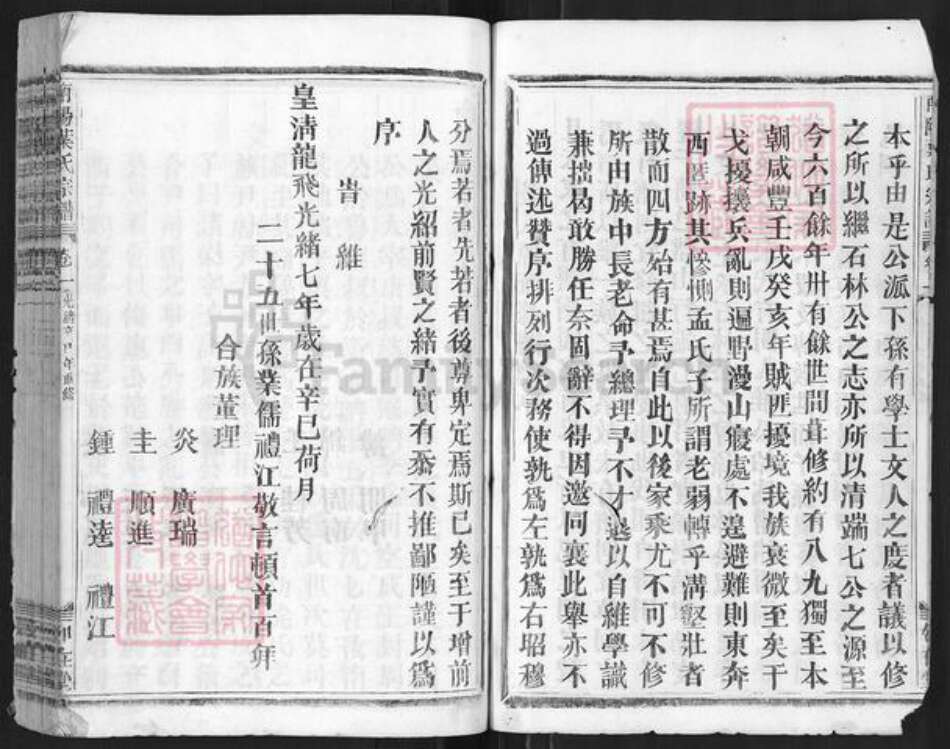 本乎由是公派下孫有學士文人之度者議以修
之所以繼石林公之志亦所以清端七公之源至
今六百餘年卅有餘世間葺修約有八九獨至本
朝咸豐壬戌癸亥年賊匪擾境我族衰微至矣干
戈擾攘兵亂則遍野漫山寢處不遑避難則東奔
西跡其慘惻孟氏子所謂老弱轉乎溝壑壯者
散而四方殆有甚焉自此以後家乘尤不可不修
所由族中長老命予總理予不才退以自維學識
兼拙曷敢勝任奈固辭不得因邀同襄此舉亦不
過傳述贊序排列行次務使孰爲左孰爲右昭穆
分焉若者先若者後尊卑定焉斯已矣至于增前
人之光紹前賢之緒予實有忝不推鄙陋謹以爲
序
旹維
皇清龍飛光緒七年歲在辛巳荷月
二十五世孫業儒禮江敬言頓首百拜
合族董理
炎 廣瑞
圭 順進
鍾 禮逹 禮江
南陽葉氏宗譜 卷一 光緒辛巳年重修